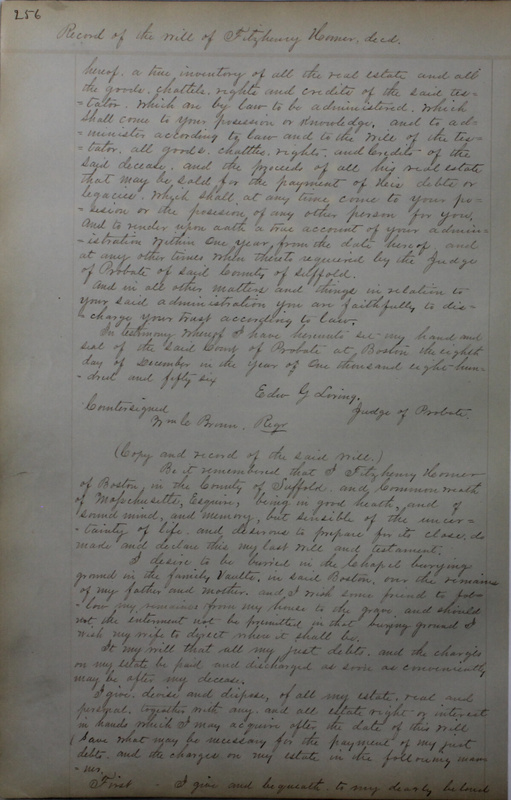 256
Record of the will of Fitzhenry Homer, decd.
hereof. a true inventory of all the real estate and all
the goods. chattels. rights and credits of the said tes=
=tator. which are by law to be administered. which
shall come to your posession or knowledge. and to ad=
=minister according to law and to the will of the tes=
=tator. all goods. chattles. rights. and Credits of the
said decease. and the proceeds of all his real estate
that may be sold for the payment of his debts or
legacies. which shall at any time come to your po=
=session or the posession of any other person for you,
And to render upon oath a true account of your admin=
=istration within one year, from the date hereof, and
at any other times when thereto required by the Judge
of Probate of said County of Suffold.
And in all other matters and things in relation to
your said administration you are faithfully to dis=
=charge your trust according to law.
In testimony whereof I have hereunto set my hand and
seal of the said Court of Probate at Boston the eighth
day of December in the year of One thousand eight hun=
=dred and fifty six
Edw G Loring.
Countersigned Judge of Probate.
Wm C Brown. Regr
(Copy and record of the said will.)
Be it remembered that I Fitzhenry Homer
of Boston, in the County of Suffold. and Common wealth
of Massachusetts, Esquire, being in good heath, and of
sound mind, and memory, but sensible of the uncer=
=tainty of life. and desirous to prepare for its close, do
made and declare this my last will and testament.
I desire to be burried in the Chapel burrying
ground in the family Vaults. in said Boston. over the remains
of my father and mother. and I wish some friend to fol=
=low my remains from my house to the grave. and should
not the interment not be permitted in that burying ground I
wish my wife to direct where it shall be.
It my will that all my just debts. and the charges
on my estate be paid and discharged as soon as conveniently
may be after my decease.
I give. devise and dispose, of all my estate. real and
personal. together with any. and all estate right or interest
in lands which I may acquire after the date of this will
save what may be necessary for the payment of my just
debts. and the charges on my estate in the following man=
=ner.
First - I give and bequeath. to my dearly beloved